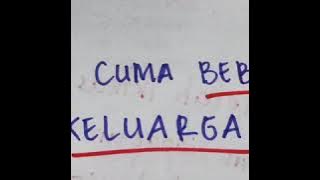 CUMA BEB
KELUARGA